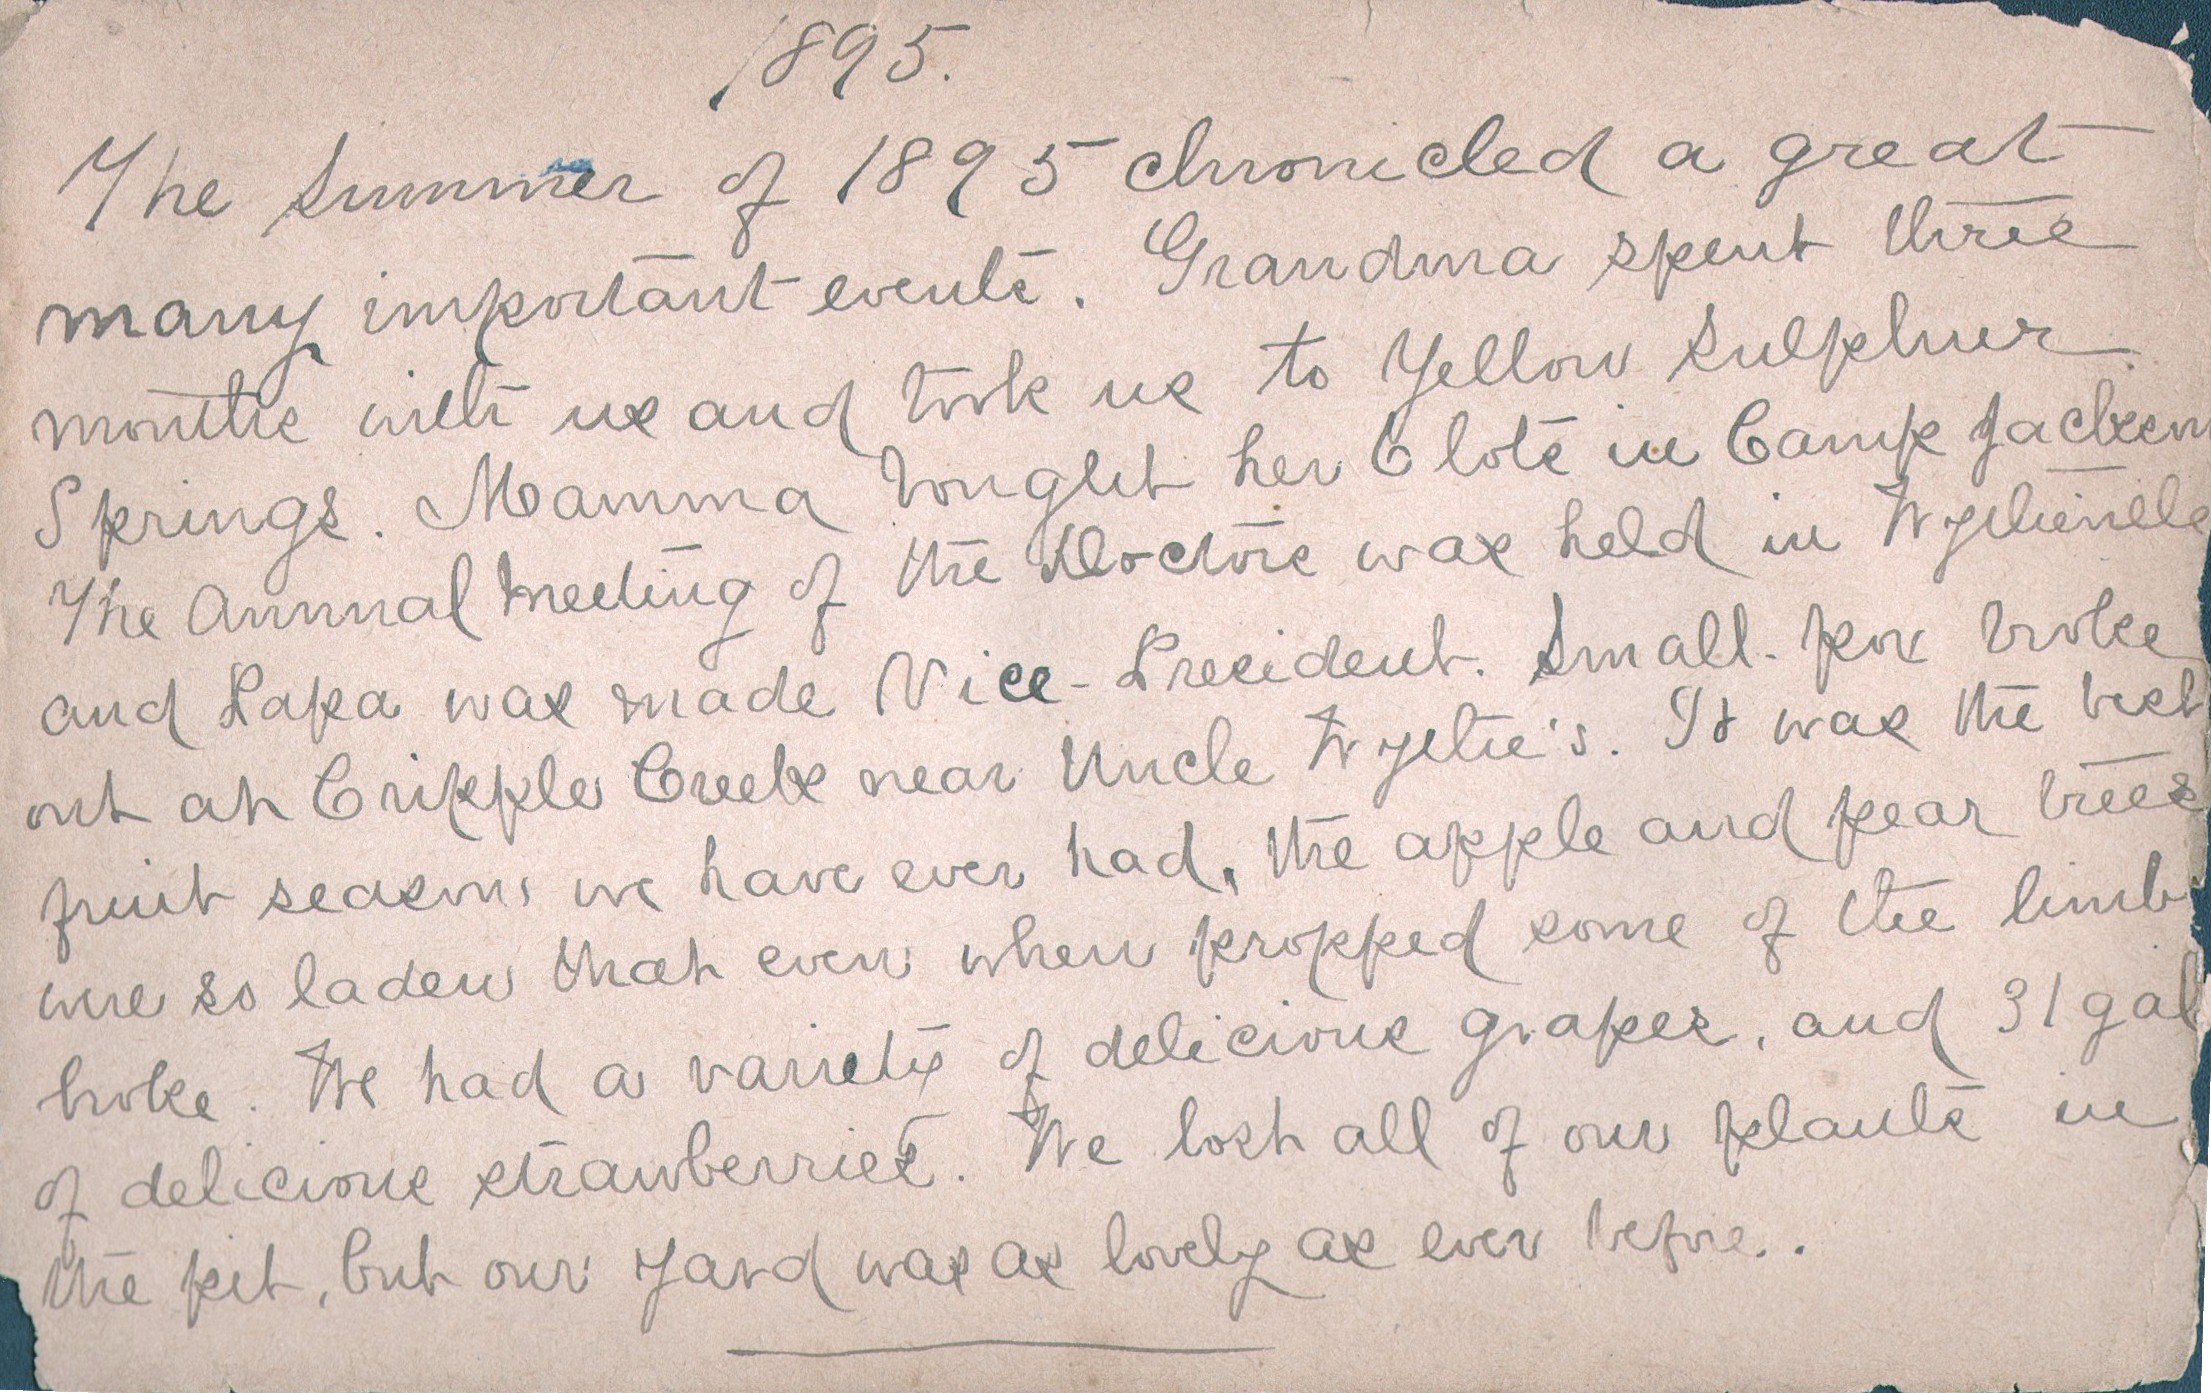 1895.
The Summer of 1895 chronicled a great
many important events. Grandma spent three
months with us and took us to Yellow Sulphur
Springs. Mamma bought her 6 lots in Camp Jackson
The Annual Meeting of the Doctors was held in Wytheville
and Papa was made Vice-President. Small-pox broke
out at Cripple Creek near Uncle Wythe's. It was the best
fruit season, we have ever had, the apple and pear trees
were so laden that even when propped some of the limbs
broke. We had a variety of delicious grapes, and 31 gal
of delicious strawberries. We lost all of our plants in
the pit, but our yard was as lovely as ever before.